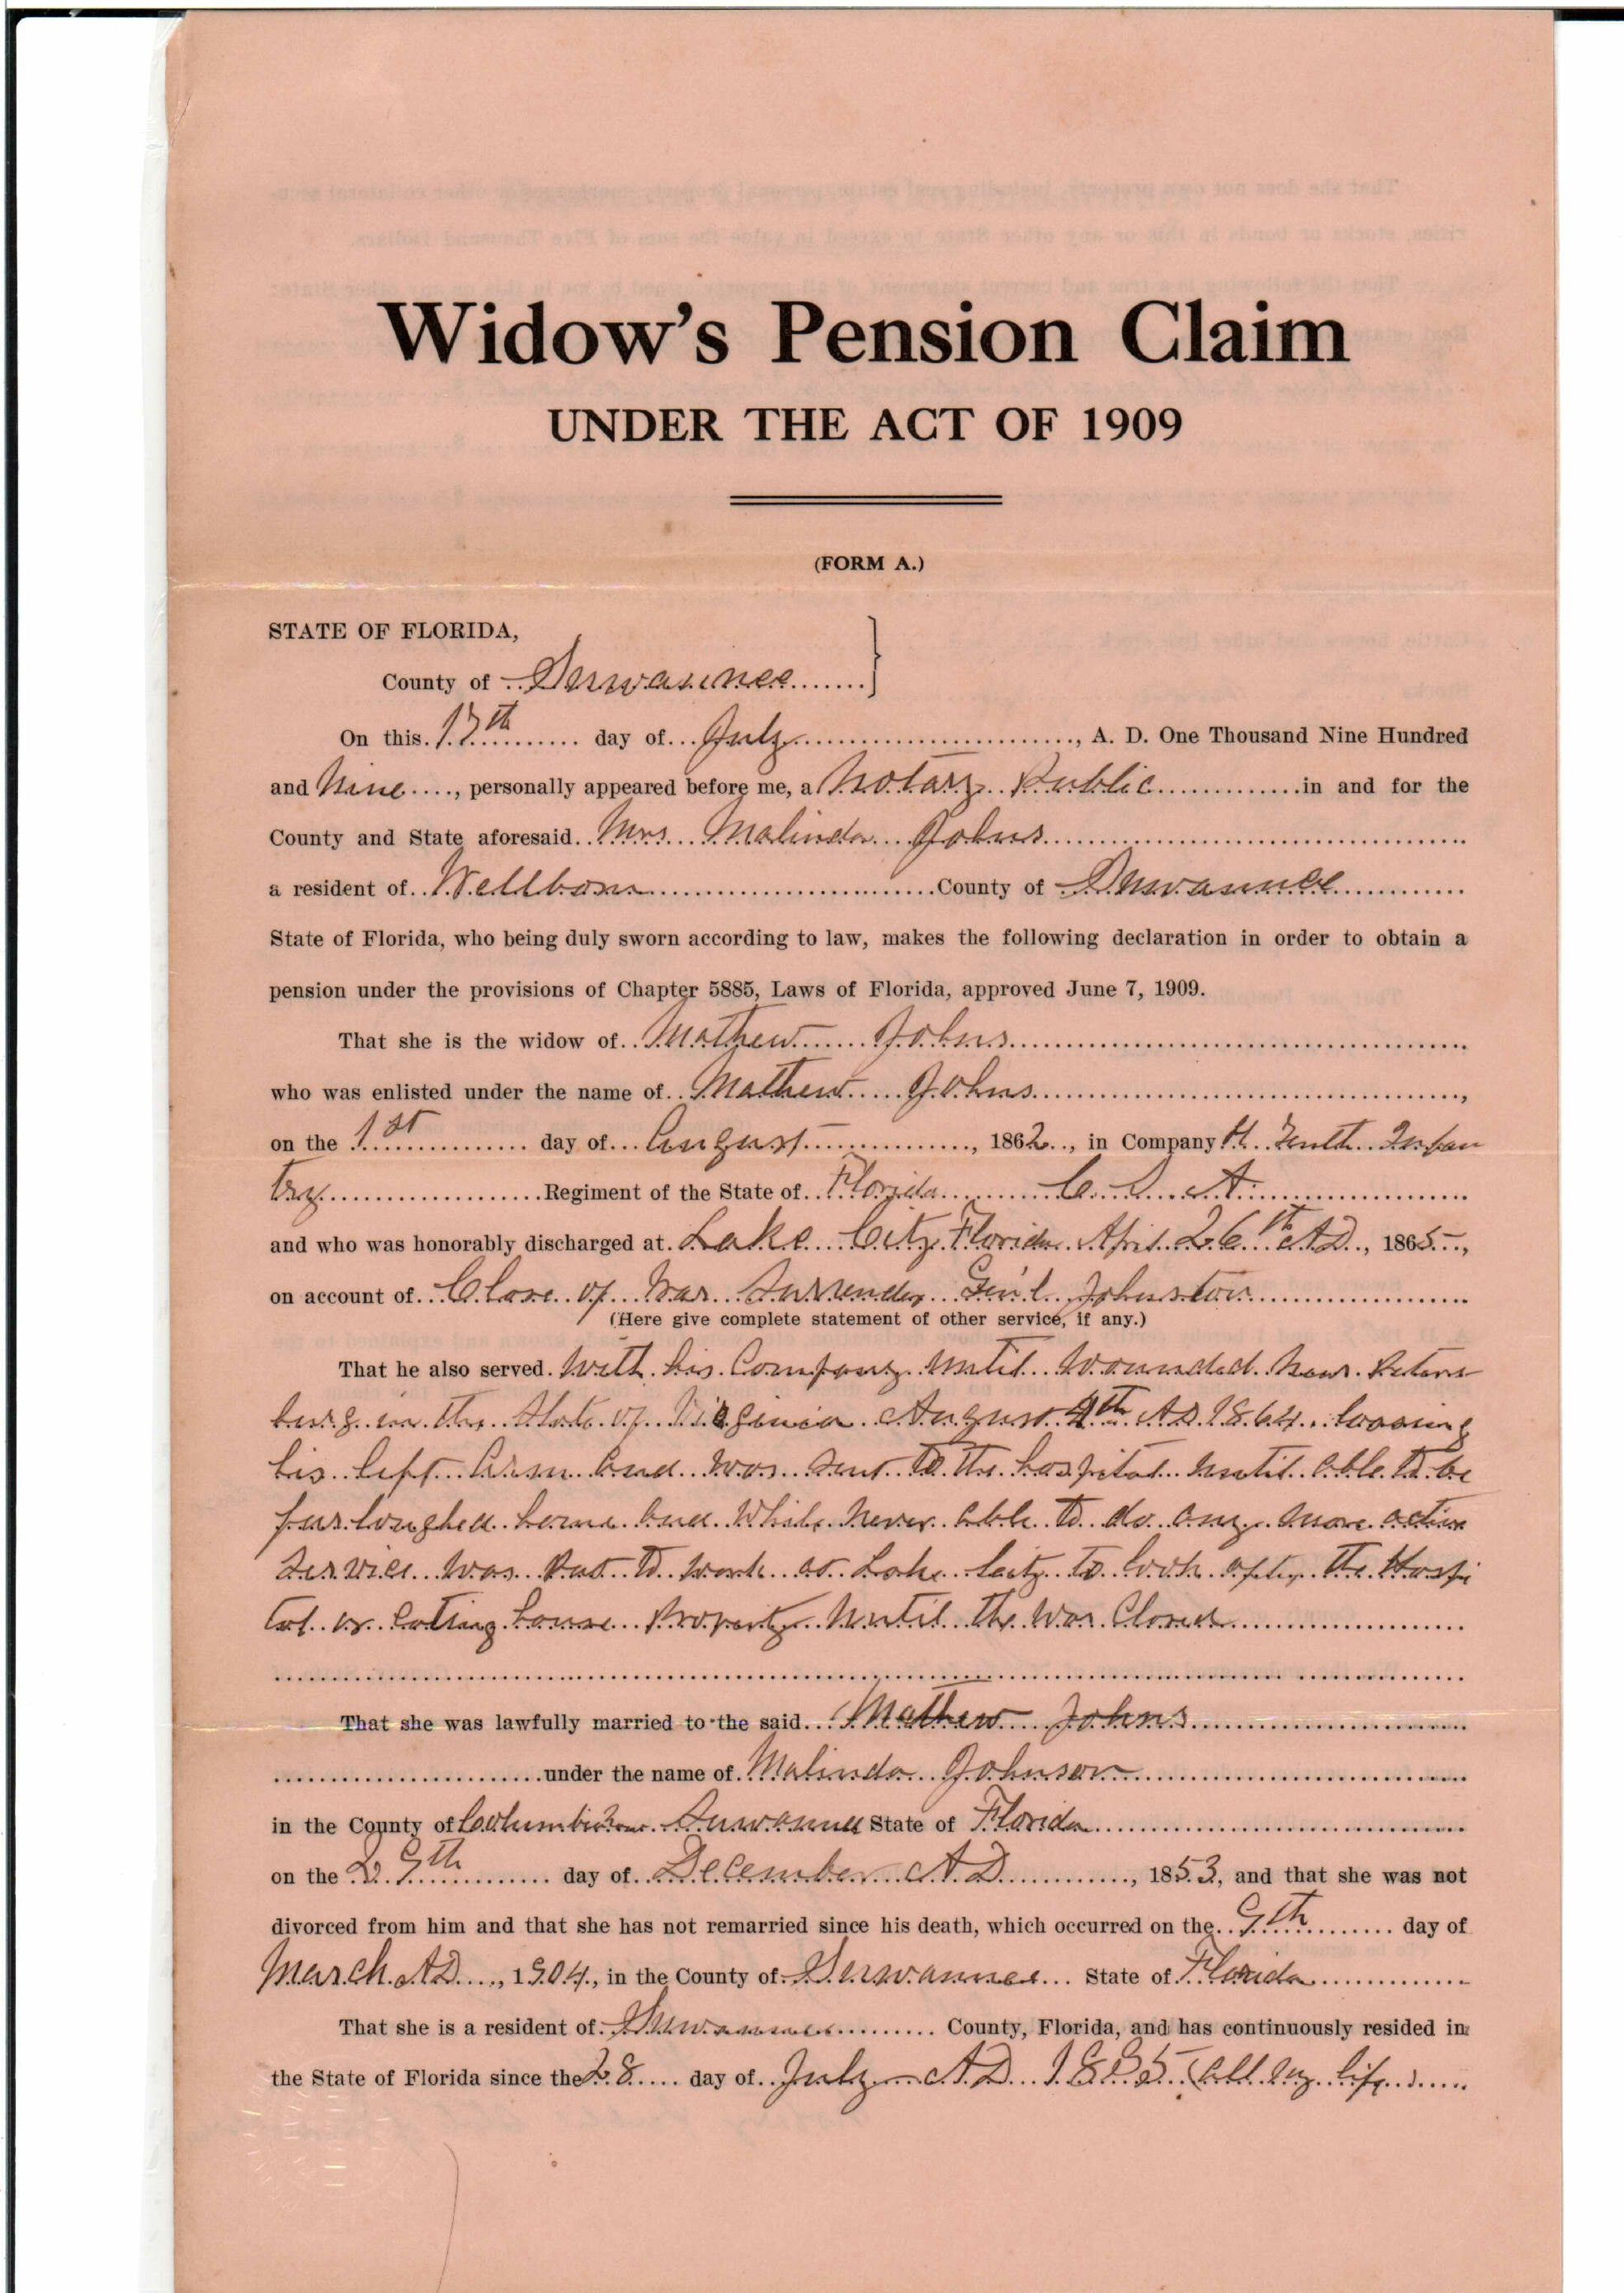 Widow's Pension Claim
UNDER THE ACT OF 1909
(FORM A.)
STATE OF FLORIDA,
County of Suwannee
On this 17th day of July, A. D. One Thousand Nine Hundred
and Nine, personally appeared before me, a Notary Public in and for the
County and State aforesaid Mrs Malinda Johns
a resident of Wellborn County of Suwannee
State of Florida, who being duly sworn according to law, makes the following declaration in order to obtain a
pension under the provisions of Chapter 5885, Laws of Florida, approved June 7, 1909.
That she is the widow of Mathew Johns
who was enlisted under the name of Mathew Johns,
on the 1st day of August, 1862, in Company H Tenth Infan
try Regiment of the State of Florida C. S. A.
and who was honorably discharged at Lake City Florida April 26th AD, 1865,
on account of Close of War Surrender Gen'l Johnston
(Here give complete statement of other service, if any.)
That he also served With his Company until Wounded Near Peters
burg in the State of Virginia August 9th AD 1864 loosing
his left Arm and was sent to the hospital until able to be
furloughed home and While Never able to do any more active
Service was Put to work at Lake City to look after the Hospi
tal or Eating house Property Until the War Closed
That she was lawfully married to the said Mathew Johns
under the name of Malinda Johnson
in the County of Columbia now Suwannee State of Florida
on the 29th day of December AD, 1853, and that she was not
divorced from him and that she has not remarried since his death, which occurred on the 9th day of
March AD, 1904, in the County of Suwannee State of Florida
That she is a resident of Suwannee County, Florida, and has continuously resided in
the State of Florida since the 28 day of July AD 1835 (all my life)